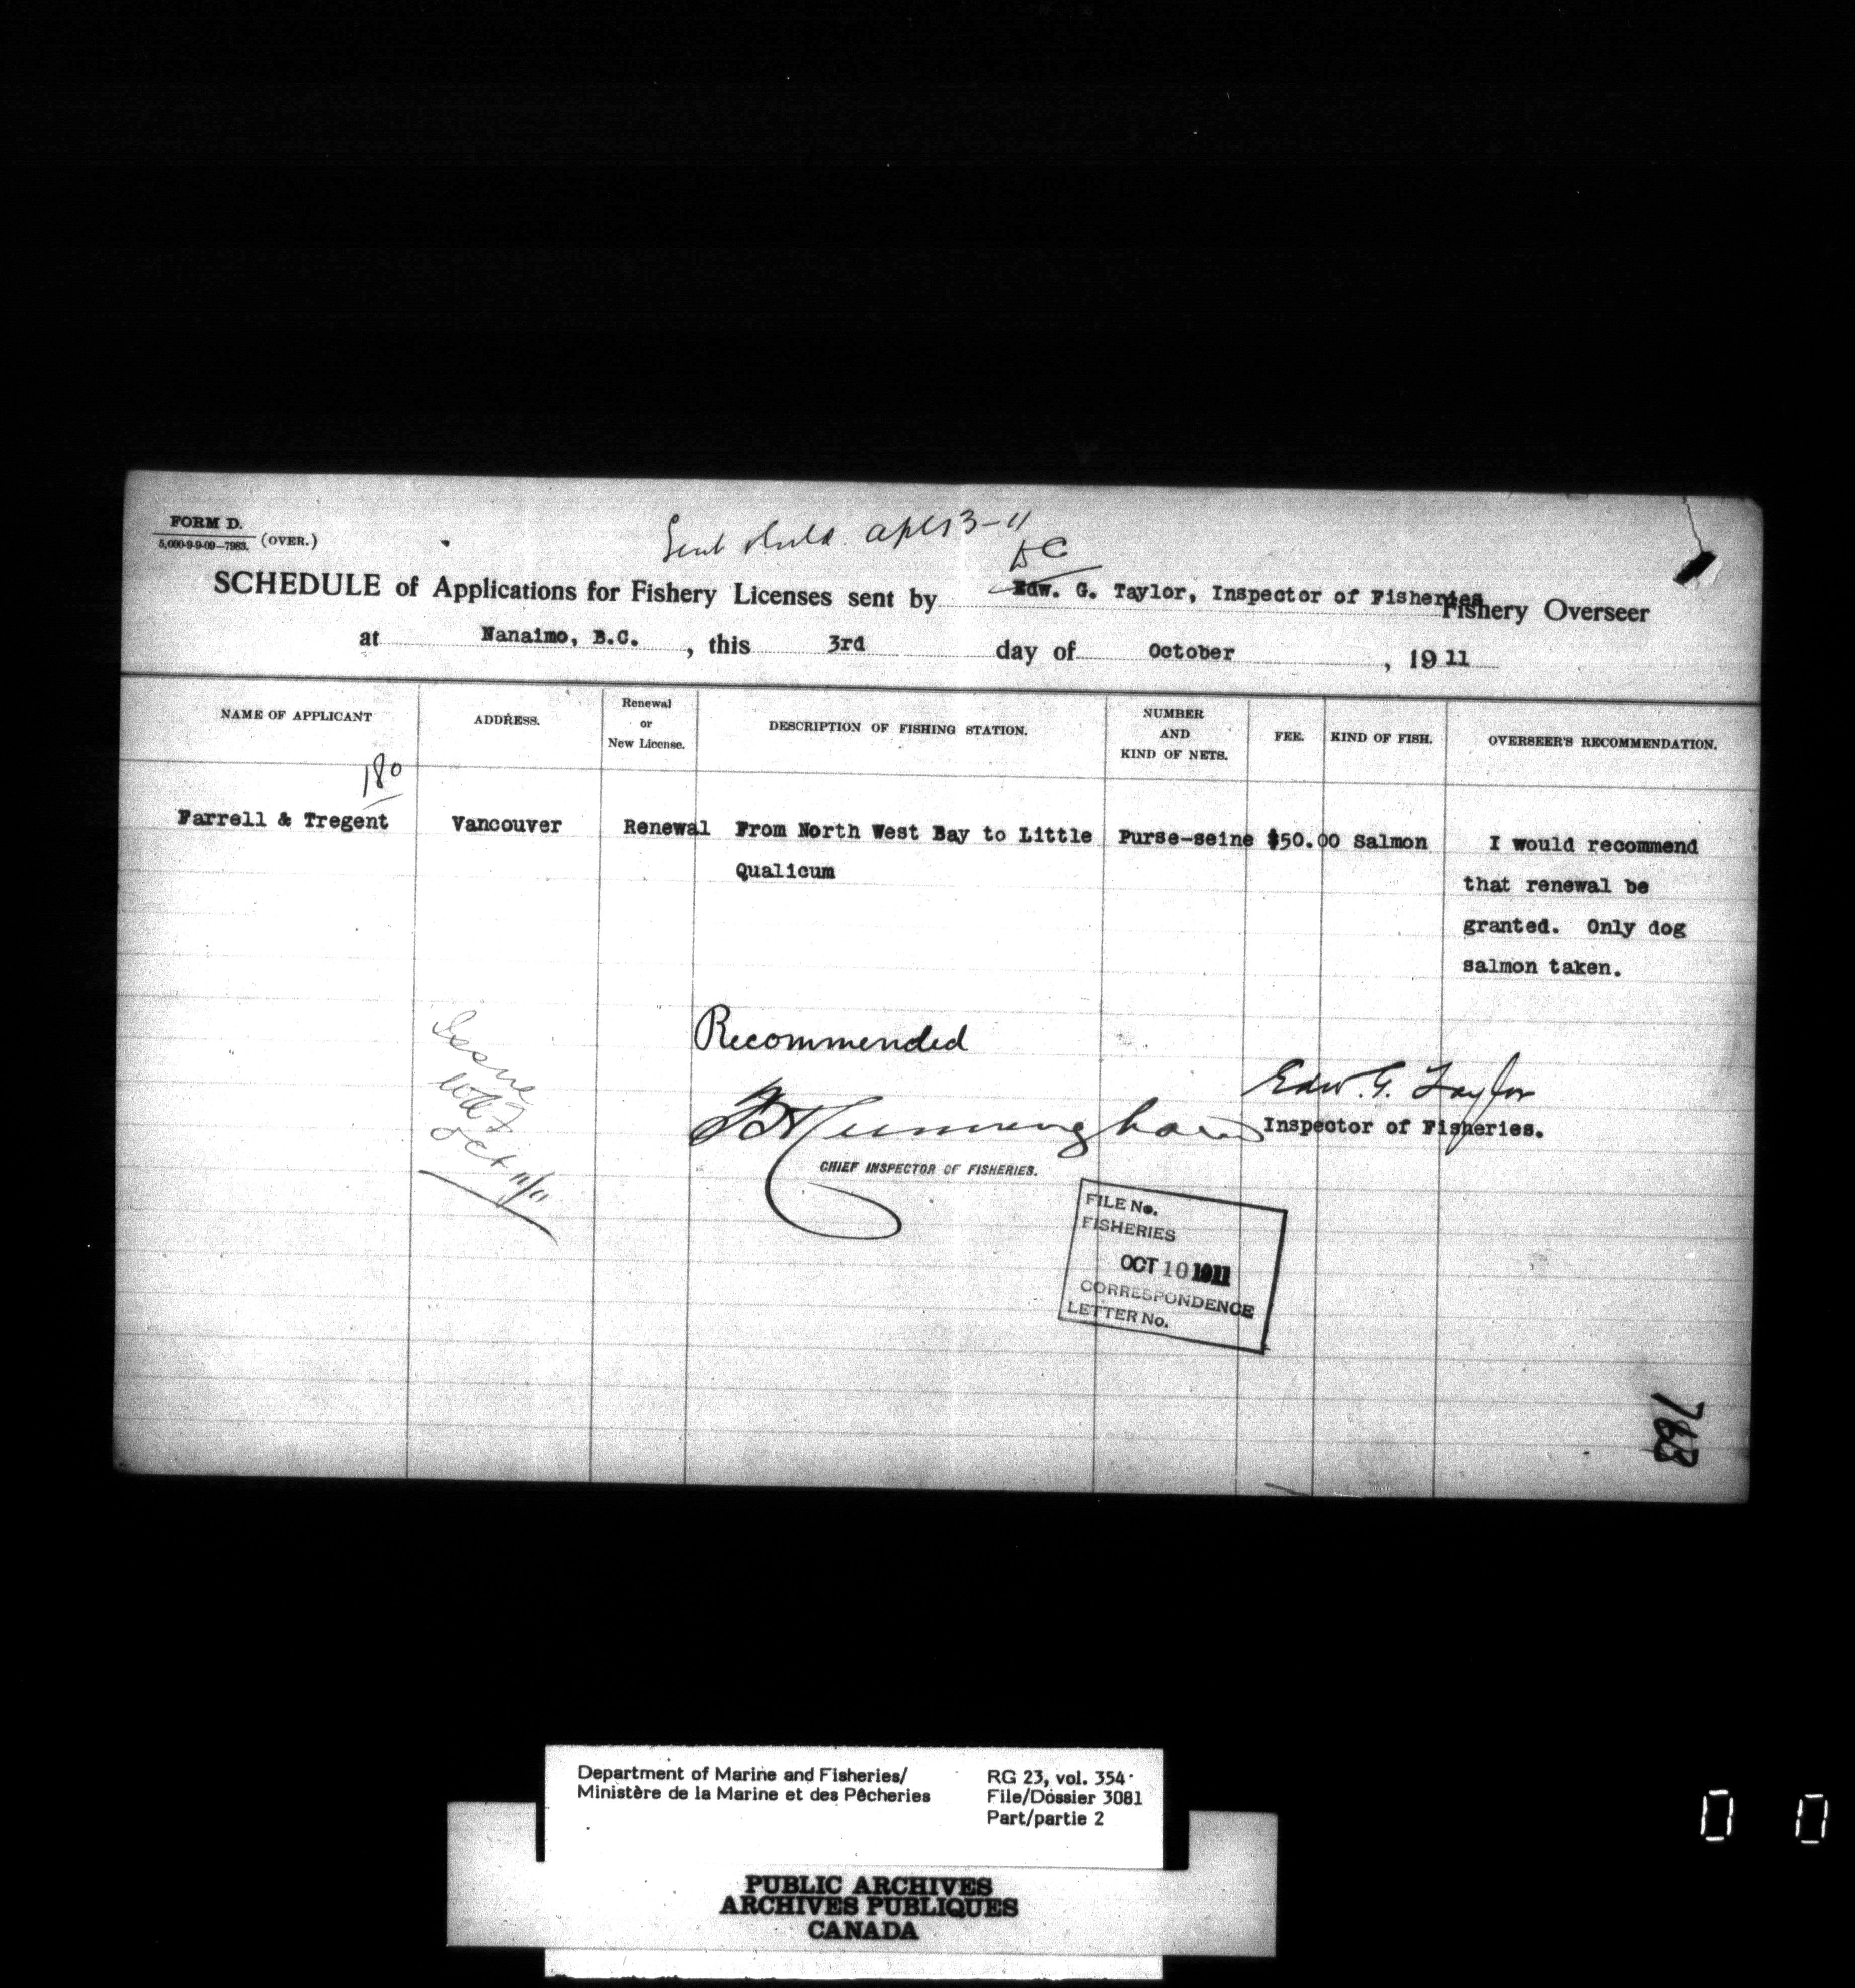 FORM D.
5,000-9-9-09—7983.
(OVER.)
Sent
SCHEDULE of Applications for Fishery Licenses sent by Edw. G. Taylor, Inspector of Fisheries Fishery Overseer
at Nanaimo, B.C. , this 3rd day of October , 1911
NAME OF APPLICANT
ADDRESS.
Renewal
or
New License.
DESCRIPTION OF FISHING STATION.
NUMBER
AND
KIND OF NETS.
FEE.
KIND OF FISH.
OVERSEER'S RECOMMENDATION.
180
Farrell & Tregent
Vancouver
Renewal
From North West Bay to Little
Qualicum
Purse-seine
$50.00
Salmon
I would recommend
that renewal be
granted. Only dog
salmon taken.
Issue
Oct 11/11
Recommended
F H Cunningham
CHIEF INSPECTOR OF FISHERIES.
Edw. G. Taylor
Inspector of Fisheries.
FILE No.
FISHERIES
OCT 10 1911
CORRESPONDENCE
LETTER No.
763
Department of Marine and Fisheries/
Ministère de la Marine et des Pêcheries
RG 23, vol. 354
File/Dossier 3081
Part/partie 2
PUBLIC ARCHIVES
ARCHIVES PUBLIQUES
CANADA
0 0